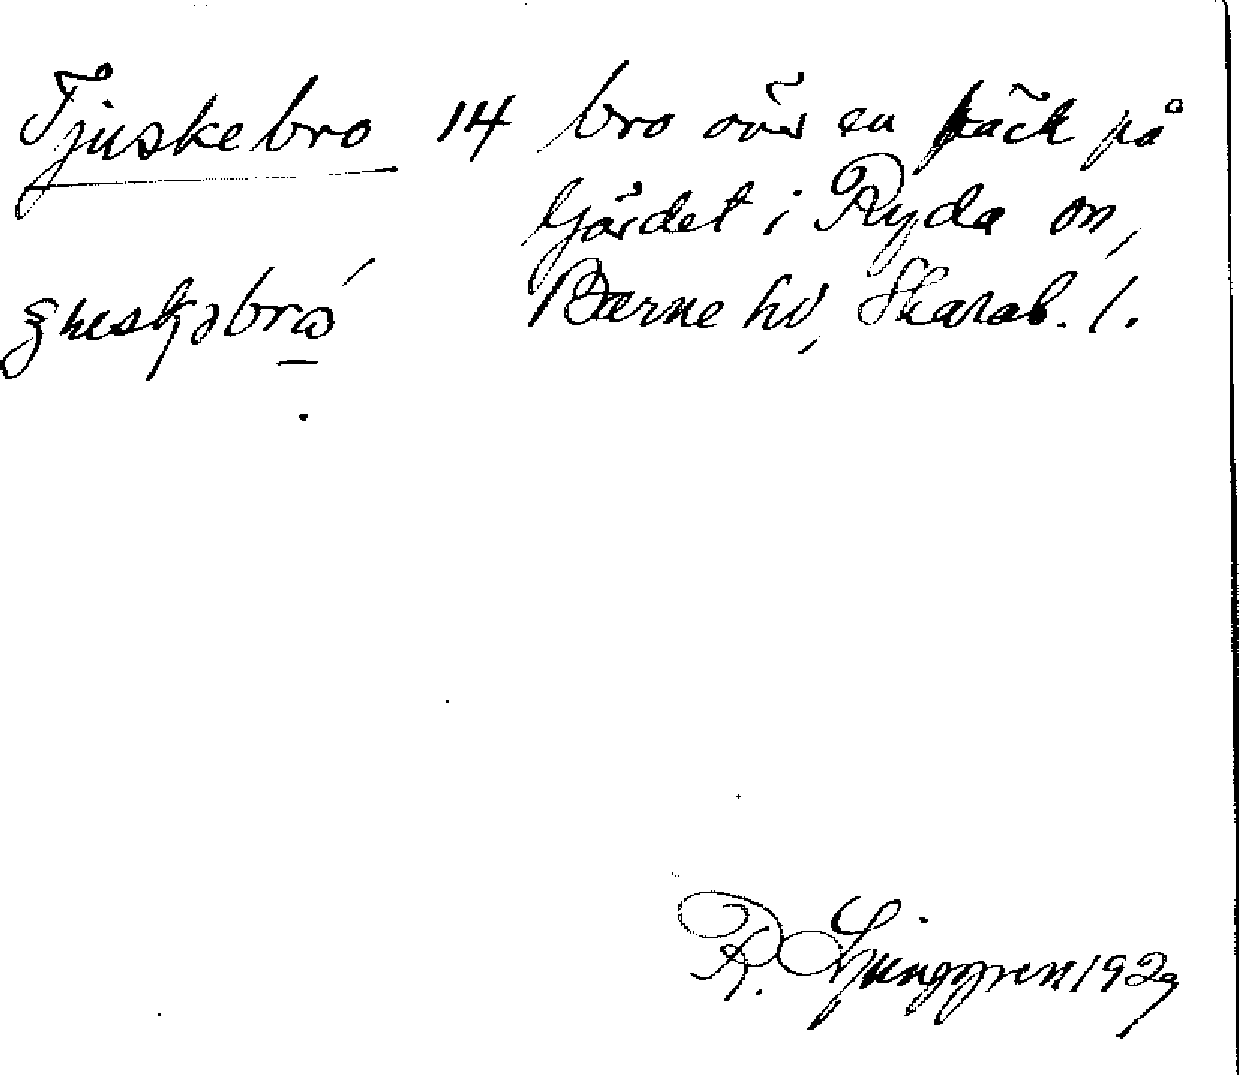 Tjuskebro 14 bro över en bäck på
Gärdet i Ryda sn,
Barne hd, Skarab. l.
R. Ljunggren 1929